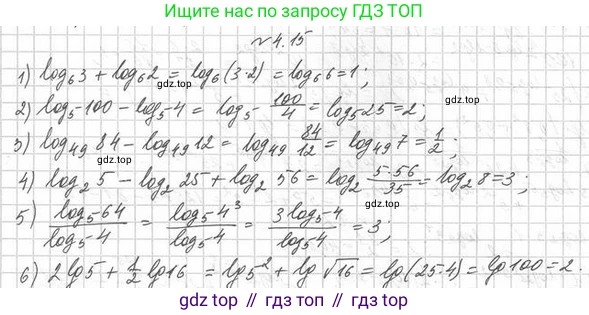 Ищите нас по запросу ГДЗ ТОП
№4.15
1) log₆3 + log₆2 = log₆(3·2) = log₆6 = 1;
gdz.top
2) log₅-100 - log₅-4 = log₅- 100/4 = log₅25 = 2;
gdz.top
3) log₄₉ 84 - log₄₉ 12 = log₄₉ 84/12 = log₄₉ 7 = 1/2;
gdz.top
4) log₂ 5 - log₂ 25 + log₂ 56 = log₂ 5·56/35 = log₂ 8 = 3;
5) log₅-64/log₅-4 = log₅4³/log₅-4 = 3log₅-4/log₅4 = 3;
gdz.top
gdz.top
6) 2 lg5 + 1/2 lg16 = lg5² + lg √16 = lg(25·4) = lg100 = 2.
gdz top // гдз топ // gdz top // гдз топ